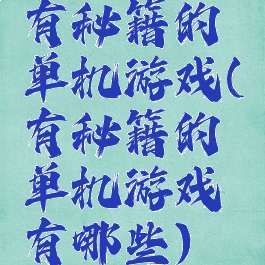 有秘籍的
单机游戏(
有秘籍的
单机游戏
有哪些)